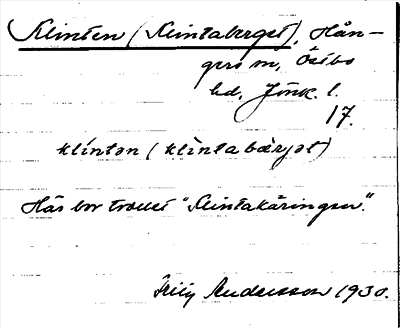 Klinten (Klintaberget), Hån-
gers sn, Östbo
hd, Jönk. l.
17.
klíntən (klìntabærjət)
Här bor trollet "Klintakäringen".
Andersson 1930.